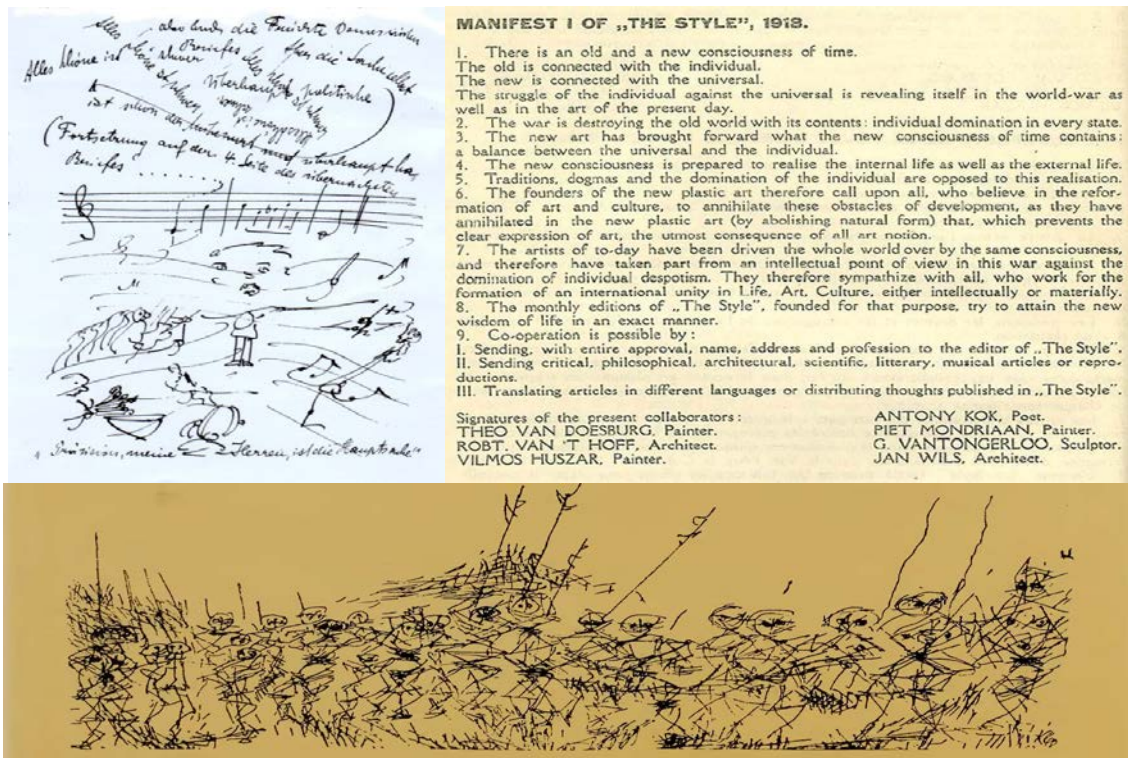 Alles
Alles Schöne ist
Briefes
überhaupt
politische
(Fortsetzung auf der 4. Seite des übernächsten
Briefes . . . . . . .
„ Präzision, meine Herren, ist die Hauptsache"
MANIFEST I OF „THE STYLE", 1918.
1. There is an old and a new consciousness of time.
The old is connected with the individual.
The new is connected with the universal.
The struggle of the individual against the universal is revealing itself in the world-war as
well as in the art of the present day.
2. The war is destroying the old world with its contents: individual domination in every state.
3. The new art has brought forward what the new consciousness of time contains:
a balance between the universal and the individual.
4. The new consciousness is prepared to realise the internal life as well as the external life.
5. Traditions, dogmas and the domination of the individual are opposed to this realisation.
6. The founders of the new plastic art therefore call upon all, who believe in the refor-
mation of art and culture, to annihilate these obstacles of development, as they have
annihilated in the new plastic art (by abolishing natural form) that, which prevents the
clear expression of art, the utmost consequence of all art notion.
7. The artists of to-day have been driven the whole world over by the same consciousness,
and therefore have taken part from an intellectual point of view in this war against the
domination of individual despotism. They therefore sympathize with all, who work for the
formation of an international unity in Life, Art, Culture, either intellectually or materially.
8. The monthly editions of „The Style", founded for that purpose, try to attain the new
wisdom of life in an exact manner.
9. Co-operation is possible by:
I. Sending, with entire approval, name, address and profession to the editor of „The Style".
II. Sending critical, philosophical, architectural, scientific, litterary, musical articles or repro-
ductions.
III. Translating articles in different languages or distributing thoughts published in „The Style".
Signatures of the present collaborators:
THEO VAN DOESBURG, Painter.
ROBT. VAN 'T HOFF, Architect.
VILMOS HUSZAR, Painter.
ANTONY KOK, Poet.
PIET MONDRIAAN, Painter.
G. VANTONGERLOO, Sculptor.
JAN WILS, Architect.